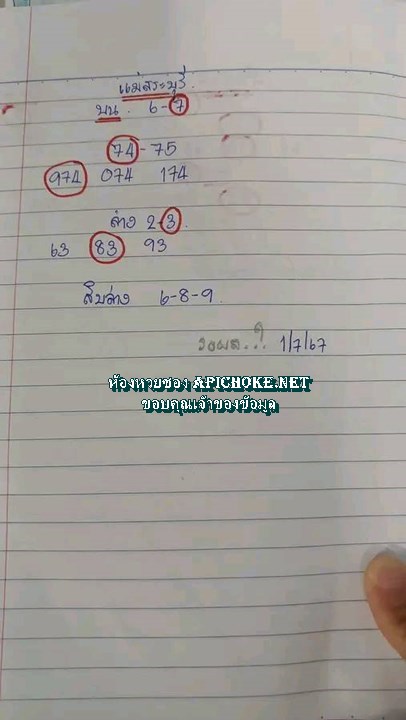 แม่สระบุรี
บน. 6-7
74-75
974 074 174
ล่าง 2-3
63 83 93
สิบล่าง 6-8-9
รอผล...? 1/7/67
ห้องหวยซอง APICHOKE.NET
ขอบคุณเจ้าของข้อมูล